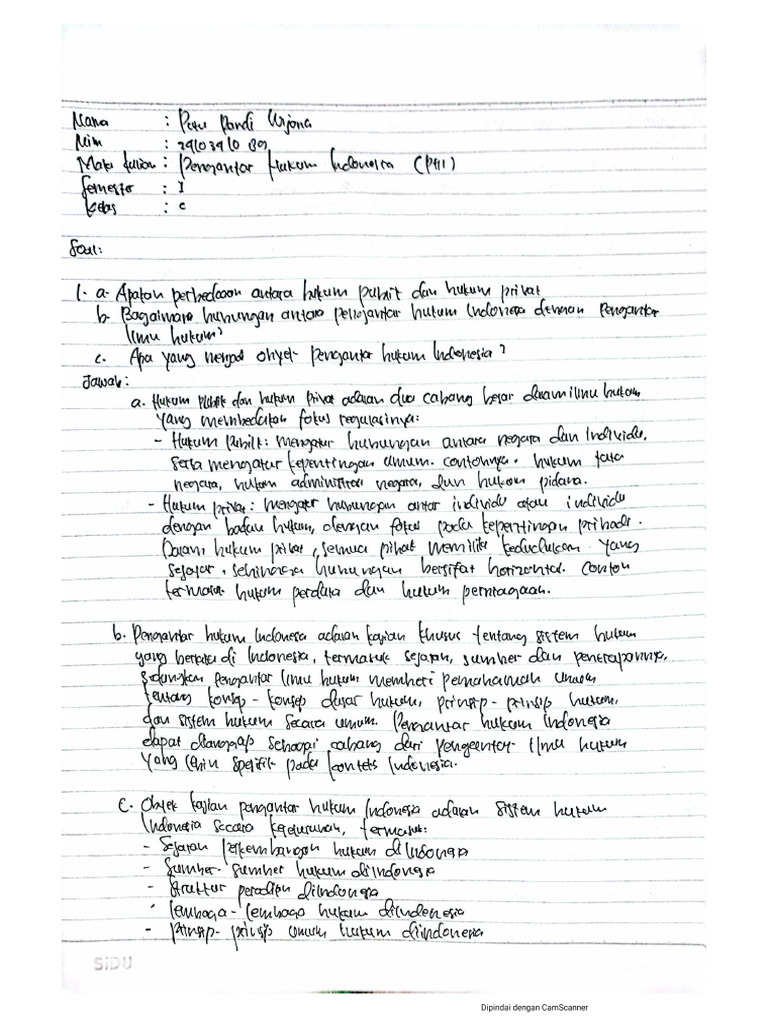 Nama : Putu Pandi Wijana
Nim :
Mata kuliah : Pengantar Hukum Indonesia (PHI)
Semester : I
Kelas : C
Soal:
1. a. Apakah perbedaan antara hukum publik dan hukum privat
b. Bagaimana hubungan antara pengantar hukum Indonesia dengan Pengantar
Ilmu hukum?
c. Apa yang menjadi obyek pengantar hukum Indonesia?
Jawab:
a. Hukum publik dan hukum privat adalah dua cabang besar dalam ilmu hukum
yang membedakan fokus regulasinya:
- Hukum publik: mengatur hubungan antara negara dan individu,
serta mengatur kepentingan umum. contohnya. hukum tata
negara, hukum administrasi negara, dan hukum pidana.
- Hukum privat: mengatur hubungan antar individu atau individu
dengan badan hukum, dengan fokus pada kepentingan pribadi.
Dalam hukum privat, semua pihak memiliki kedudukan yang
sejajar, sehingga hubungan bersifat horizontal. Contoh
termasuk hukum perdata dan hukum perniagaan.
b. Pengantar hukum Indonesia adalah kajian khusus tentang sistem hukum
yang berlaku di Indonesia, termasuk sejarah, sumber dan penerapannya,
sedangkan Pengantar Ilmu hukum memberi pemahaman umum
tentang konsep - konsep dasar hukum, prinsip - prinsip hukum,
dan sistem hukum secara umum. Pengantar hukum Indonesia
dapat dianggap sebagai cabang dari pengantar Ilmu hukum
yang lebih spesifik pada konteks Indonesia.
c. Objek kajian pengantar hukum Indonesia adalah sistem hukum
Indonesia secara keseluruhan, termasuk:
- Sejarah Perkembangan hukum diIndonesia
- Sumber-sumber hukum diIndonesia
- Struktur peradilan diIndonesia
- lembaga-lembaga hukum diIndonesia
- Prinsip-prinsip umum hukum diIndonesia
SiDU
Dipindai dengan CamScanner